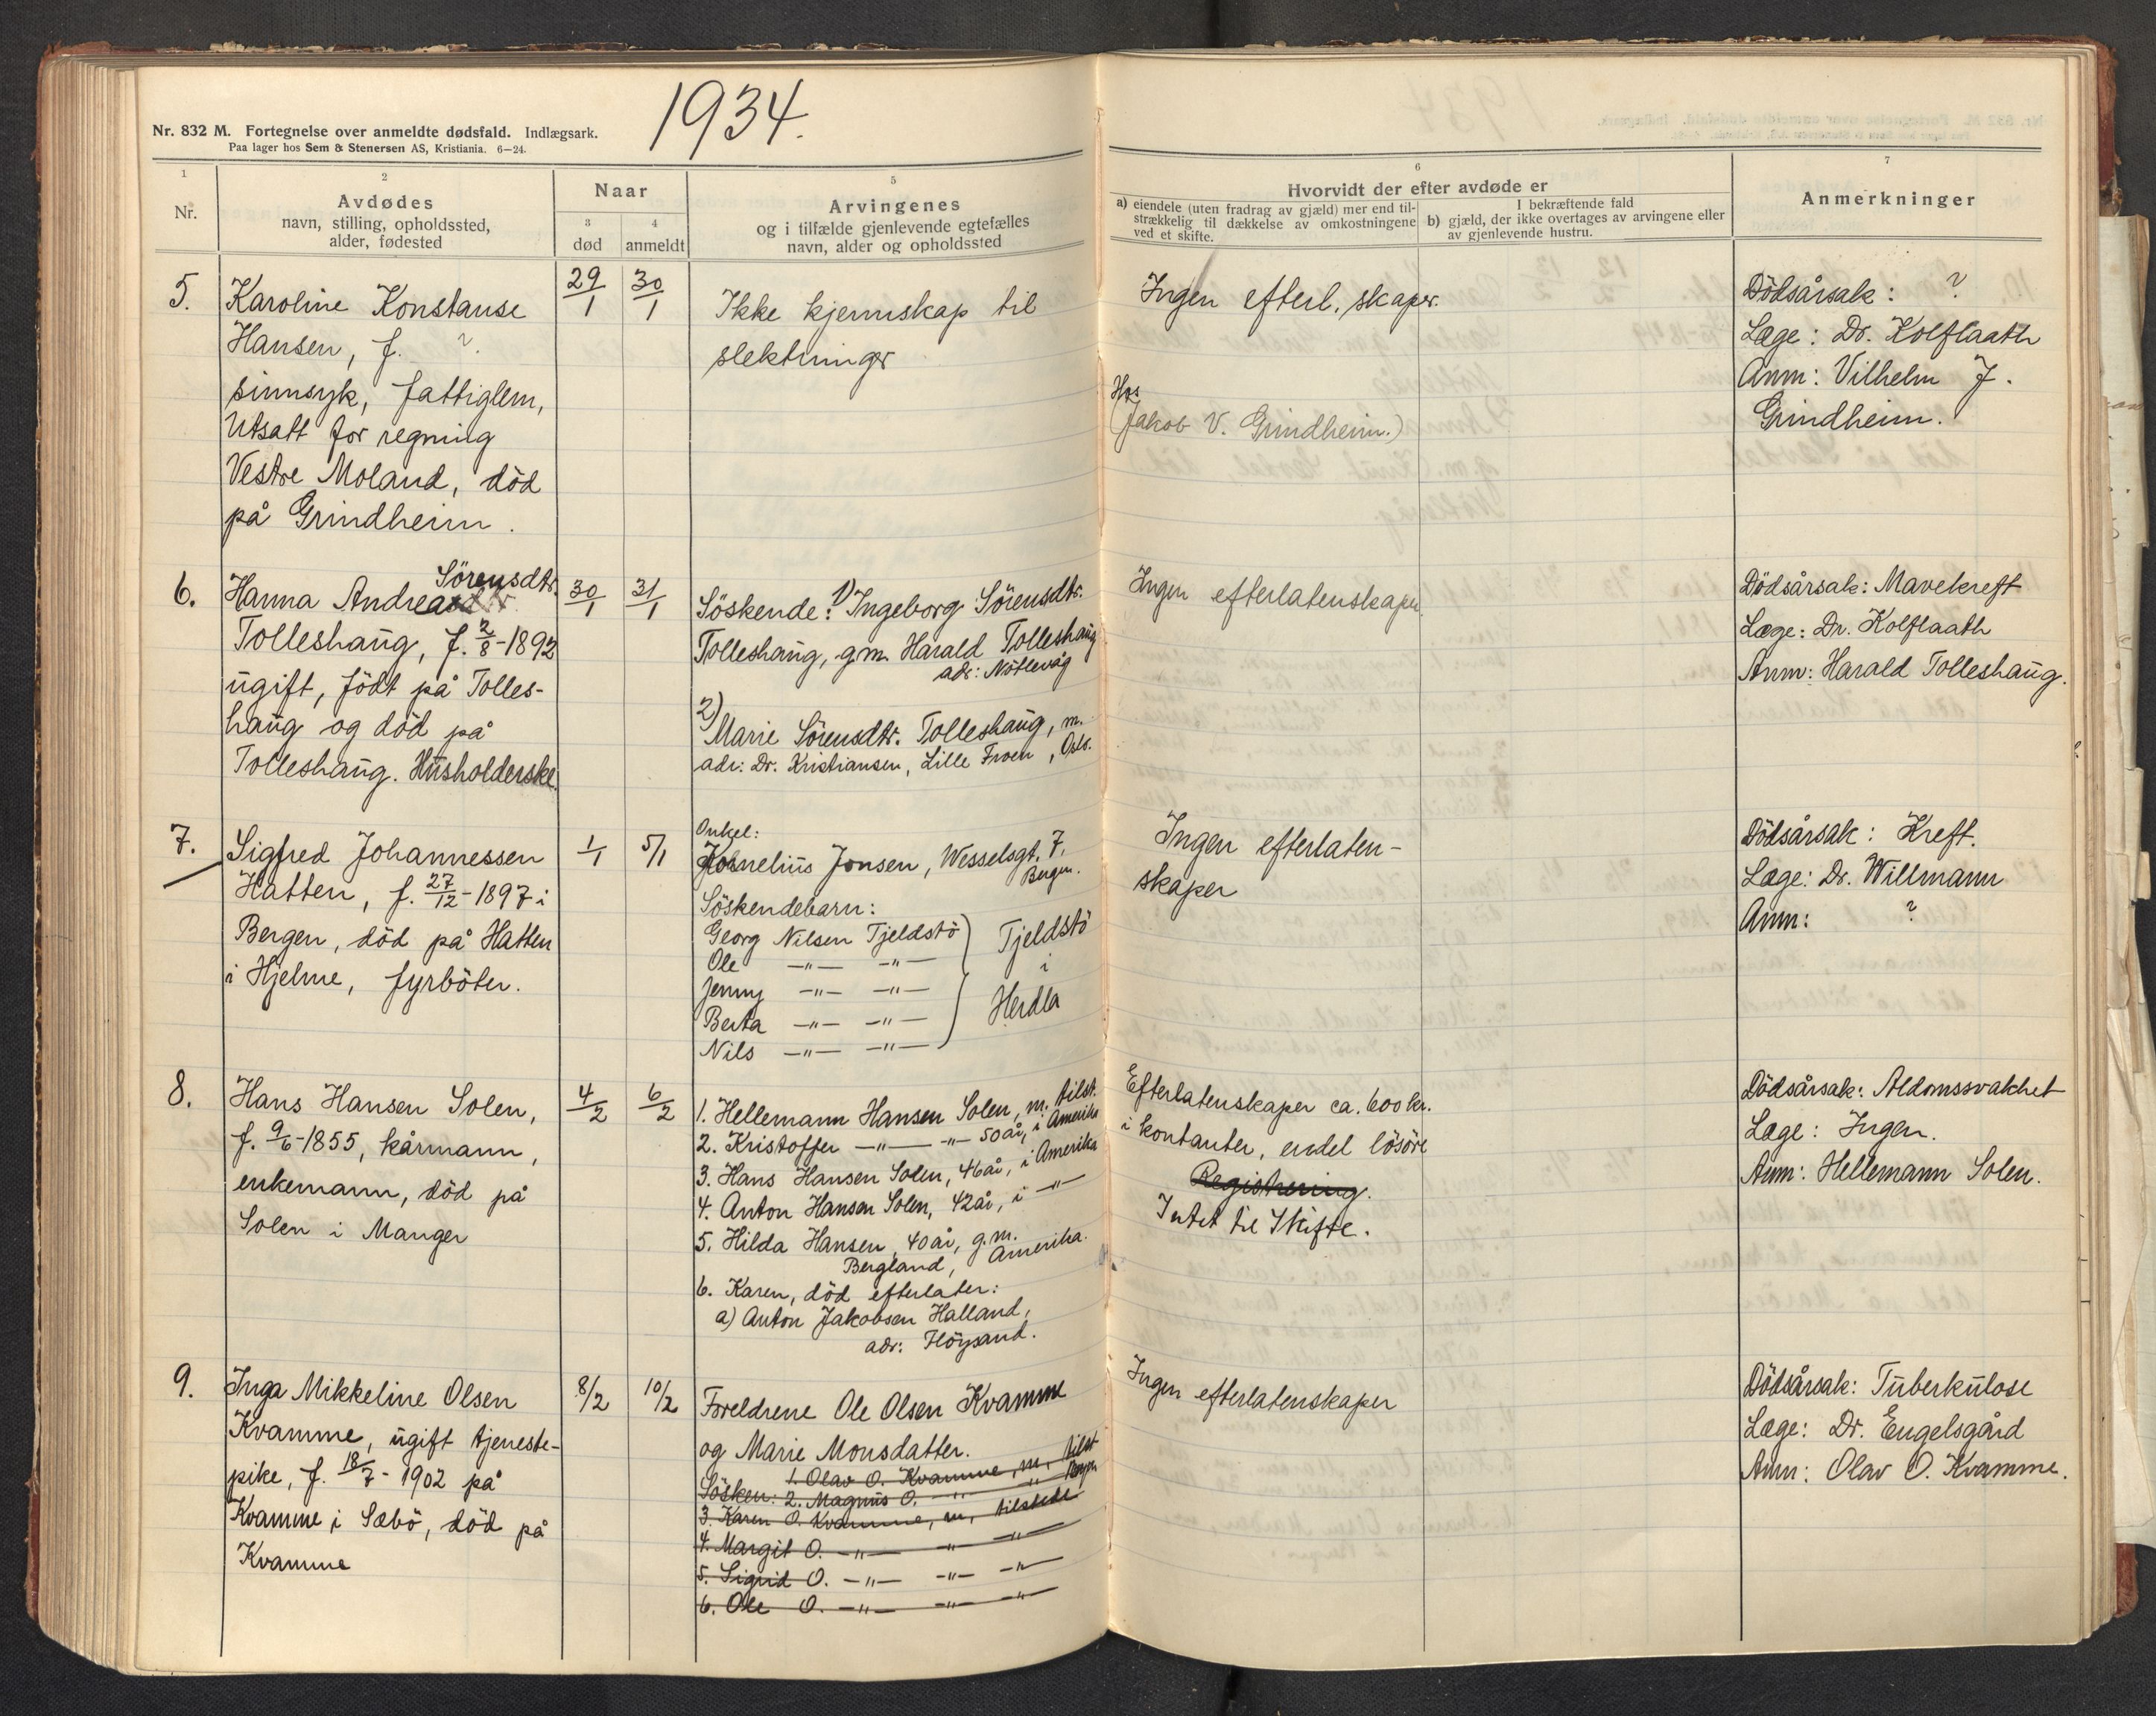 1934.
Nr. 832 M. Fortegnelse over anmeldte dødsfald. Indlægsark.
Paa lager hos Sem & Stenersen AS, Kristiania. 6—24.
1
Nr.
2
Avdødes
navn, stilling, opholdssted,
alder, fødested
Naar
3
død
4
anmeldt
5
Arvingenes
og i tilfælde gjenlevende egtefælles
navn, alder og opholdssted
6
Hvorvidt der efter avdøde er
a) eiendele (uten fradrag av gjæld) mer end til-
strækkelig til dækkelse av omkostningene
ved et skifte.
I bekræftende fald
b) gjæld, der ikke overtages av arvingene eller
av gjenlevende hustru.
7
Anmerkninger
5.
Karoline Konstanse
Hansen, f. ?.
sinnsyk, fattiglem,
utsatt for regning
Vestre Moland, död
på Grindheim.
29/1
30/1
Ikke kjennskap til
slektninger
Ingen efterl. skaper.
Hos
(Jakob V. Grindheim.)
Dödsårsak: ?
Læge: Dr. Kolflaath
Anm: Vilhelm J.
Grindheim.
6.
Sörensdtr.
Hanna Andrea
Tolleshaug, f. 2/8-1892
ugift, födt på Tolles-
haug og död på
Tolleshaug. Husholderske
30/1
31/1
Söskende: 1) Ingeborg Sörensdtr.
Tolleshaug, g.m. Harald Tolleshaug
adr: Nötlevåg
2)
Marie Sörensdtr. Tolleshaug, m.
adr: Dr. Kristiansen, Lille Froen, Oslo.
Ingen efterlatenskaper
Dödsårsak: Mavekreft
Læge: Dr. Kolflaath
Anm: Harald Tolleshaug.
7.
Sigfred Johannessen
Hatten, f. 27/12-1897 i
Bergen, död på Hatten
i Hjelme, fyrböter.
1/1
5/1
Onkel:
Kornelius Jonsen, Wesselsgt. 7,
Bergen.
Söskendebarn:
Georg Nilsen Tjeldstö
Ole —"— —"—
Jenny —"— —"—
Berta —"— —"—
Nils —"— —"—
Tjeldstö
i
Herdla
Ingen efterlaten-
skaper
Dödsårsak: Kreft.
Læge: Dr. Willmann
Anm: ?
8.
Hans Hansen Solen,
f. 9/6-1855, kårmann,
enkemann, död på
Solen i Manger
4/2
6/2
1. Hellemann Hansen Solen, m. tilst.
2. Kristoffer —"— —"— 50 år, i Amerika
3. Hans Hansen Solen, 46 år, i Amerika
4. Anton Hansen Solen, 42 år, i —"—
5. Hilda Hansen, 40 år, g.m.
Bergland, Amerika.
6. Karen, död efterlater:
a) Anton Jakobsen Halland,
adr: Flöysand.
Efterlatenskaper ca. 600 kr.
i kontanter, endel lösöre
Registrering.
Intet til Skifte.
Dödsårsak: Aldomssvakhet
Læge: Ingen.
Anm: Hellemann Solen.
9.
Inga Mikkeline Olsen
Kvamme, ugift tjeneste-
pike, f. 18/7-1902 på
Kvamme i Sæbö, död på
Kvamme
8/2
10/2
Foreldrene Ole Olsen Kvamme
og Marie Monsdatter.
1. Olav O. Kvamme, m. tilst
Sösken: 2. Magnus O. —"— " Bergen
3. Karen O. Kvamme, m. tilstede
4. Margit O. —"— —"— —"—
5. Sigrid O. —"— —"— —"—
6. Ole O. —"— —"— —"—
Ingen efterlatenskaper
Dödsårsak: Tuberkulose
Læge: Dr. Engelsgård
Anm: Olav O. Kvamme.